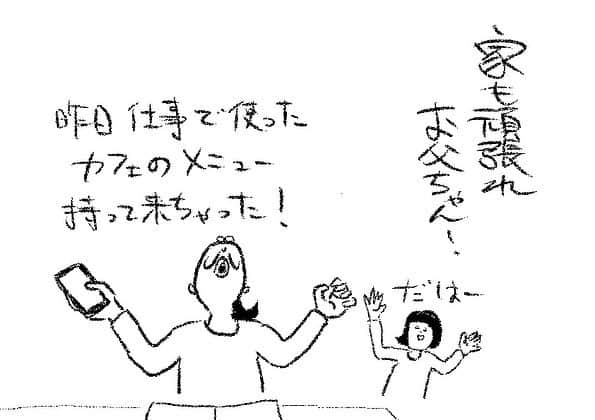 家も頑張れ
お父ちゃん!
昨日 仕事で使った
カフェのメニュー
持って来ちゃった!
だはー